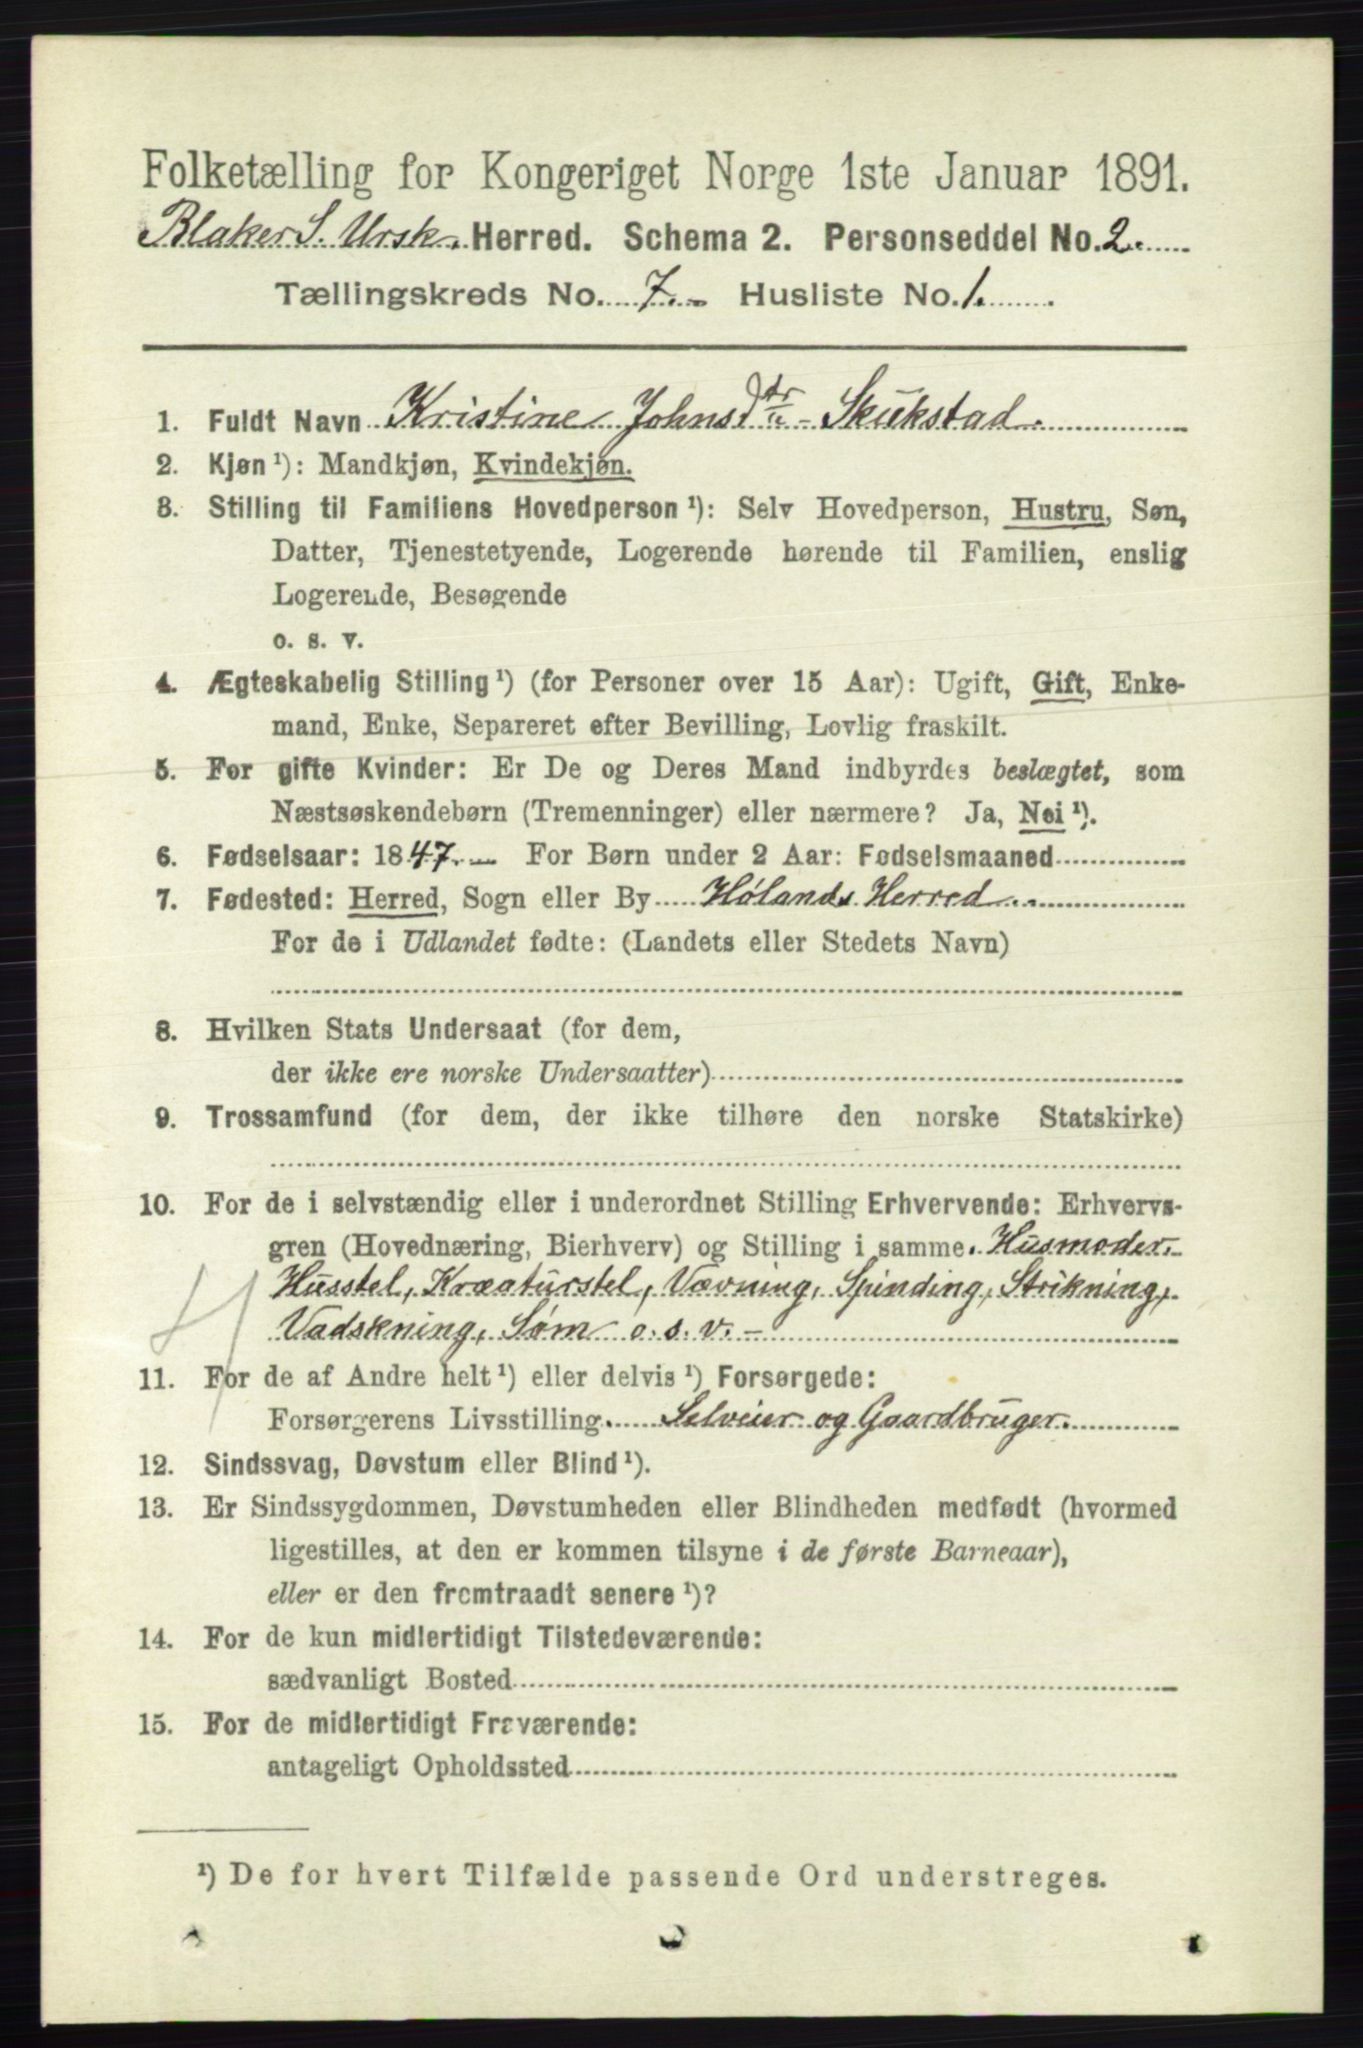 Folketælling for Kongeriget Norge 1ste Januar 1891.
Blaker S. Ursk. Herred. Schema 2. Personseddel No. 2.
Tællingskreds No. 7. - Husliste No. 1.
1. Fuldt Navn Kristine Johnsdtr - Skukstad.
2. Kjøn ¹): Mandkjøn, Kvindekjøn.
3. Stilling til Familiens Hovedperson ¹): Selv Hovedperson, Hustru, Søn,
Datter, Tjenestetyende, Logerende hørende til Familien, enslig
Logerende, Besøgende
o. s. v.
4. Ægteskabelig Stilling ¹) (for Personer over 15 Aar): Ugift, Gift, Enke-
mand, Enke, Separeret efter Bevilling, Lovlig fraskilt.
5. For gifte Kvinder: Er De og Deres Mand indbyrdes beslægtet, som
Næstsøskendebørn (Tremenninger) eller nærmere? Ja, Nei ¹).
6. Fødselsaar: 1847. - For Børn under 2 Aar: Fødselsmaaned
7. Fødested: Herred, Sogn eller By Hølands Herred
For de i Udlandet fødte: (Landets eller Stedets Navn)
8. Hvilken Stats Undersaat (for dem,
der ikke ere norske Undersaatter)
9. Trossamfund (for dem, der ikke tilhøre den norske Statskirke)
10. For de i selvstændig eller i underordnet Stilling Erhvervende: Erhvervs-
gren (Hovednæring, Bierhverv) og Stilling i samme. Husmoder.
Husstel, Kræaturstel, Vævning, Spinding, Strikning,
Vadskning, Søm o. s. v. -
11. For de af Andre helt ¹) eller delvis ¹) Forsørgede:
Forsørgerens Livsstilling. Selveier og Gaardbruger.
12. Sindssvag, Døvstum eller Blind ¹).
13. Er Sindssygdommen, Døvstumheden eller Blindheden medfødt (hvormed
ligestilles, at den er kommen tilsyne i de første Barneaar),
eller er den fremtraadt senere ¹)?
14. For de kun midlertidigt Tilstedeværende:
sædvanligt Bosted
15. For de midlertidigt Fraværende:
antageligt Opholdssted
¹) De for hvert Tilfælde passende Ord understreges.